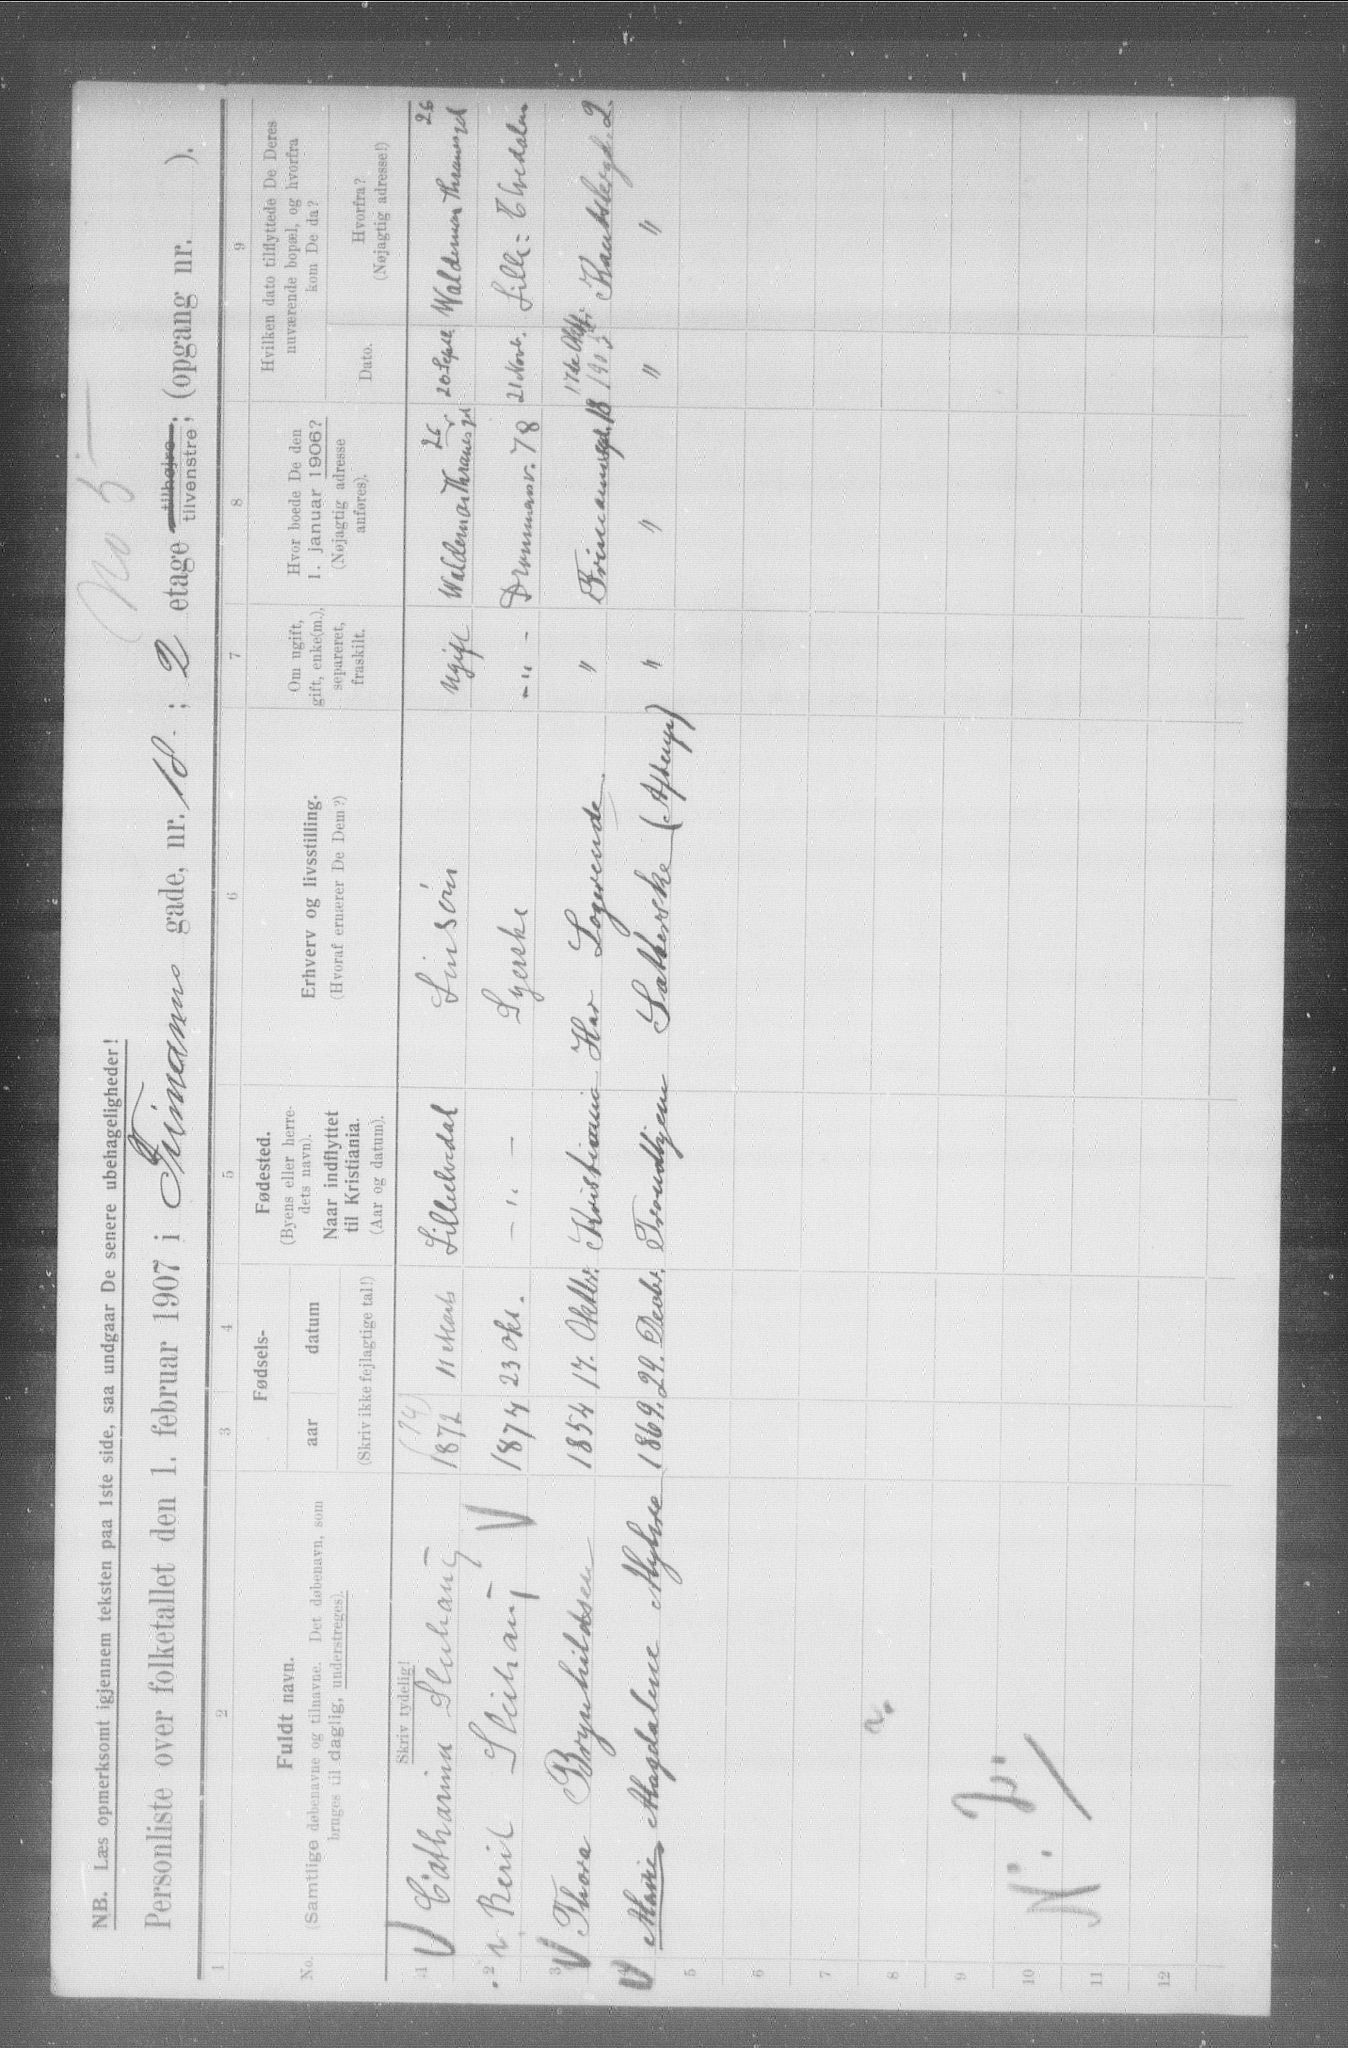 No 5
NB. Læs opmerksomt igjennem teksten paa 1ste side, saa undgaar De senere ubehageligheder!
Personliste over folketallet den 1. februar 1907 i Frimanns gade, nr. 18. ; 2 etage tilhøjre tilvenstre; (opgang nr. ).
1 2 3 4 5 6 7 8 9
No.
Fuldt navn.
(Samtlige døbenavne og tilnavne. Det døbenavn, som
bruges til daglig, understreges).
Fødsels-
aar datum
(Skriv ikke fejlagtige tal!)
Fødested.
(Byens eller herre-
dets navn).
Naar indflyttet
til Kristiania.
(Aar og datum).
Erhverv og livsstilling.
(Hvoraf ernærer De Dem?)
Om ugift,
gift, enke(m.),
separeret,
fraskilt.
Hvor boede De den
1. januar 1906?
(Nøjagtig adresse
anføres).
Hvilken dato tilflyttede De Deres
nuværende bopæl, og hvorfra
kom De da?
Dato.
Hvorfra?
(Nøjagtig adresse!)
Skriv tydelig!
1 Catharine 1872 11 Marts Lilleelvedal ugift Waldemar Thranesgd 26 20 Sept. Waldemar Thranesgd 26
2 Berit 1874 23 okt. - " - Syerske - " - Drammensv. 78 21 Novb. Lille-Elvedalen
3 Thora Brynhildsen 1854 17. Oktbr. Kristiania Har Logerende. " Frimannsgd. 18 17de Oktbr. 1905 2.
4 Marie Magdalene Myhre 1869 29. Decbr. Trondhjem " " " "
5
6
7
8
9
10
11
12